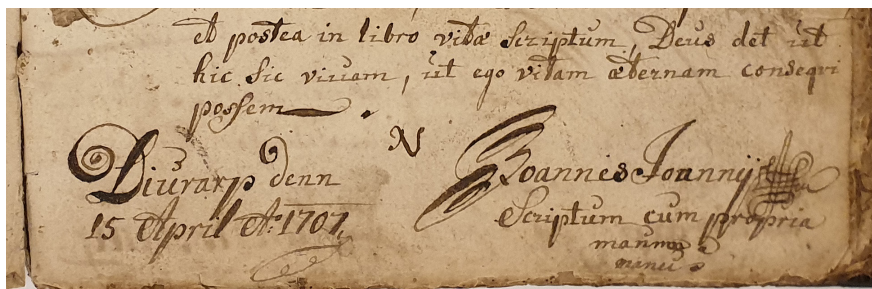 et postea in libro vitæ scriptum, Deus det ut
hic sic vivam, ut ego vitam æternam consequi
possem
N
Diurarp denn Joannes Joannis
15 April Aº: 1707, Scriptum cum propria
manu